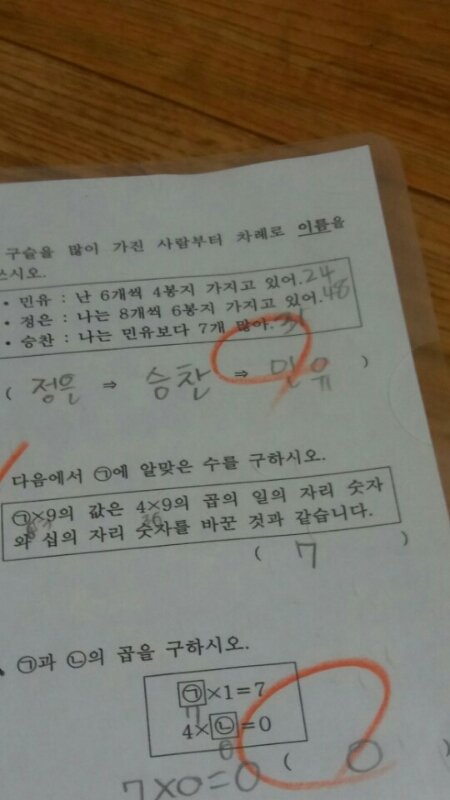 구슬을 많이 가진 사람부터 차례로 이름을
쓰시오.
• 민유 : 난 6개씩 4봉지 가지고 있어. 24
• 정은 : 나는 8개씩 6봉지 가지고 있어. 48
• 승찬 : 나는 민유보다 7개 많아. 31
( 정은 ⇒ 승찬 ⇒ 민유 )
다음에서 ㉠에 알맞은 수를 구하시오.
㉠×9의 값은 4×9의 곱의 일의 자리 숫자
와 십의 자리 숫자를 바꾼 것과 같습니다.
36
( 7 )
㉠과 ㉡의 곱을 구하시오.
㉠×1=7
7
4×㉡=0
0
7×0=0 ( 0 )